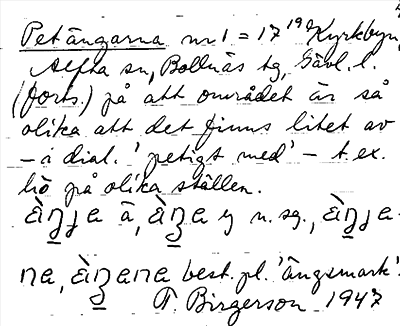 Petängarna nr 1 = 17 Kyrkbyn,
Alfta sn, Bollnäs tg, Gävl. l.
(forts.) på att området är så
olika att det finns litet av
– i dial. 'petigt med' – t. ex.
hö på olika ställen.
best. pl. 'ängsmark'.
T. Birgerson 1947